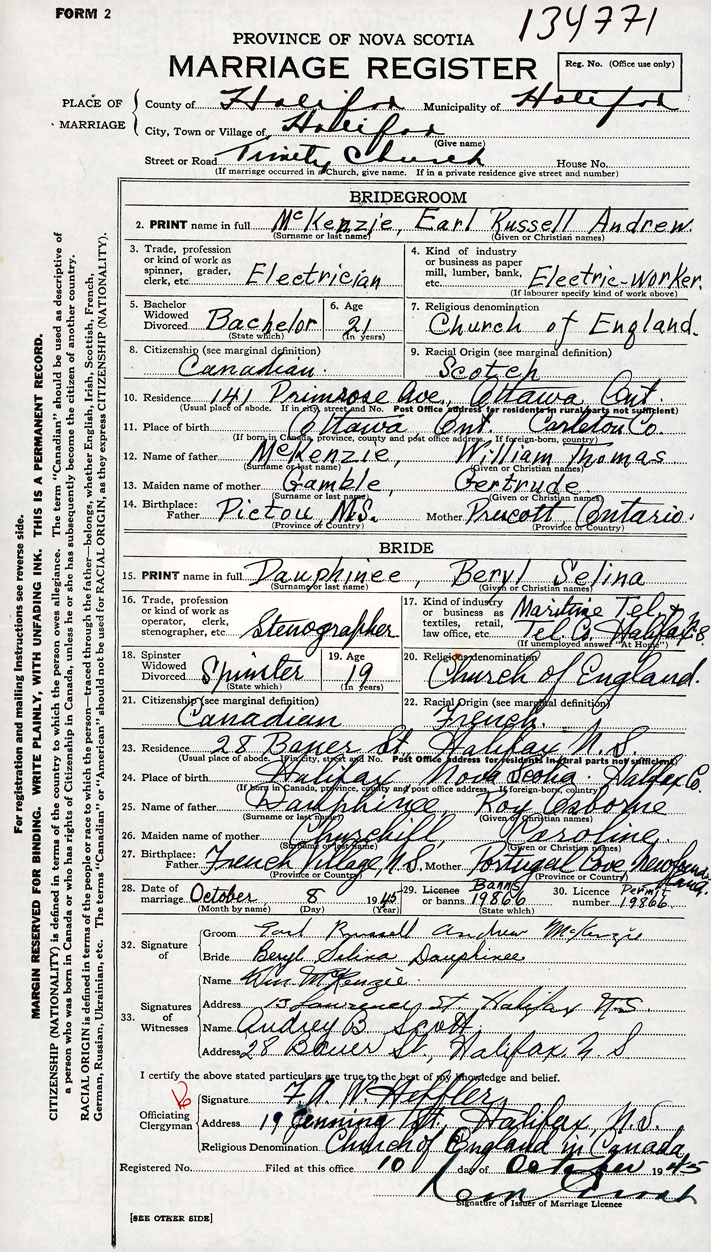 FORM 2
134771
PROVINCE OF NOVA SCOTIA
MARRIAGE REGISTER
Reg. No. (Office use only)
PLACE OF MARRIAGE
County of Halifax Municipality of Halifax
City, Town or Village of Halifax
(Give name)
Street or Road Trinity Church House No.
(If marriage occurred in a Church, give name. If in a private residence give street and number)
BRIDEGROOM
2. PRINT name in full McKenzie, Earl Russell Andrew.
(Surname or last name) (Given or Christian names)
3. Trade, profession or kind of work as spinner, grader, clerk, etc. Electrician
4. Kind of industry or business as paper mill, lumber, bank, etc. Electric-Worker.
(If labourer specify kind of work above)
5. Bachelor Widowed Divorced Bachelor
(State which)
6. Age 21
(In years)
7. Religious denomination
Church of England.
8. Citizenship (see marginal definition)
Canadian.
9. Racial Origin (see marginal definition)
Scotch
10. Residence 141 Primrose Ave, Ottawa Ont.
(Usual place of abode. If in city, street and No. Post Office address for residents in rural parts not sufficient)
11. Place of birth Ottawa Ont. Carleton Co.
(If born in Canada, province, county and post office address. If foreign-born, country)
12. Name of father McKenzie, William Thomas
(Surname or last name) (Given or Christian names)
13. Maiden name of mother Gamble, Gertrude
(Surname or last name) (Given or Christian names)
14. Birthplace: Father Pictou N.S. Mother Prescott, Ontario.
(Province or Country) (Province or Country)
BRIDE
15. PRINT name in full Dauphinee, Beryl Selina
(Surname or last name) (Given or Christian names)
16. Trade, profession or kind of work as operator, clerk, stenographer, etc. Stenographer
17. Kind of industry or business as textiles, retail, law office, etc. Maritime Tel & Tel. Co. Halifax N.S.
(If unemployed answer "At Home")
18. Spinster Widowed Divorced Spinster
(State which)
19. Age 19
(In years)
20. Religious denomination
Church of England.
21. Citizenship (see marginal definition)
Canadian
22. Racial Origin (see marginal definition)
French.
23. Residence 28 Bauer St, Halifax N.S.
(Usual place of abode. If in city, street and No. Post Office address for residents in rural parts not sufficient)
24. Place of birth Halifax Nova Scotia. Halifax Co.
(If born in Canada, province, county and post office address. If foreign-born, country)
25. Name of father Dauphinee, Roy Osborne
(Surname or last name) (Given or Christian names)
26. Maiden name of mother Churchill, Caroline.
(Surname or last name) (Given or Christian names)
27. Birthplace: Father French Village N.S. Mother Portugal Cove Newfoundland.
(Province or Country) (Province or Country)
28. Date of marriage October 8 1945
(Month by name) (Day) (Year)
29. Licence or banns Banns 19866
(State which)
30. Licence number Permit 19866
32. Signature of
Groom Earl Russell Andrew McKenzie
Bride Beryl Selina Dauphinee
33. Signatures of Witnesses
Name McKenzie.
Address St. Halifax N.S.
Name Audrey B. Scott
Address 28 Bauer St, Halifax. N S
I certify the above stated particulars are true to the best of my knowledge and belief.
Officiating Clergyman
Signature Heffler
Address 19 Jenning St., Halifax, N.S.
Religious Denomination Church of England in Canada
Registered No. Filed at this office 10 day of October 1945
Signature of Issuer of Marriage Licence
[SEE OTHER SIDE]
For registration and mailing instructions see reverse side.
MARGIN RESERVED FOR BINDING. WRITE PLAINLY, WITH UNFADING INK. THIS IS A PERMANENT RECORD.
CITIZENSHIP (NATIONALITY) is defined in terms of the country to which the person owes allegiance. The term "Canadian" should be used as descriptive of
a person who was born in Canada or who has rights of Citizenship in Canada, unless he or she has subsequently become the citizen of another country.
RACIAL ORIGIN is defined in terms of the people or race to which the person—traced through the father—belongs, whether English, Irish, Scottish, French,
German, Russian, Ukrainian, etc. The terms "Canadian" or "American" should not be used for RACIAL ORIGIN, as they express CITIZENSHIP (NATIONALITY).